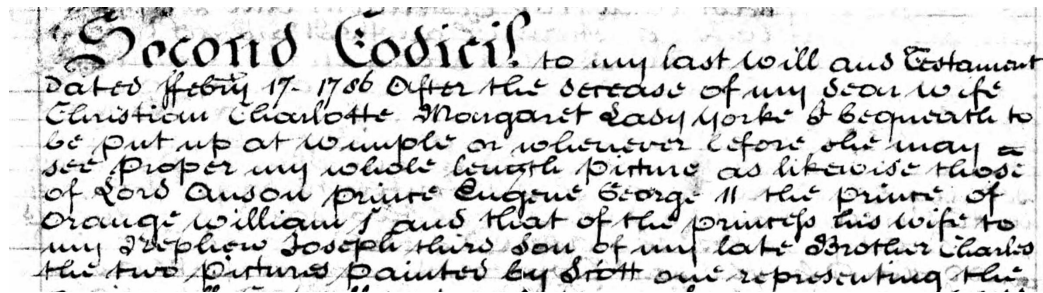 Second Codicil to my last will and Testament
Dated ffebry 17 - 1786 After the decease of my dear wife
Christian Charlotte Margaret Lady Yorke I bequeath to
be put up at Wimple or whenever before she may
see proper my whole length picture as likewise those
of Lord Anson prince Eugene George II the prince of
Orange William 5 and that of the princess his wife to
my Nephew Joseph third son of my late Brother Charles
the two pictures painted by Scott one representing the